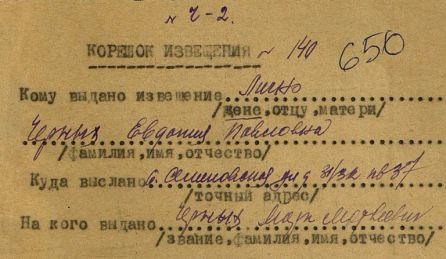 ч-2.
КОРЕШОК ИЗВЕЩЕНИЯ № 140 650
Кому выдано извещение Лично
/жене, отцу, матери/
Черных Евдокия Павловна
/фамилия,имя,отчество/
Куда выслано Семеновская д 31/32 кв 37
/точный адрес/
На кого выдано Черных Матвеевич
/звание,фамилия,имя,отчество/